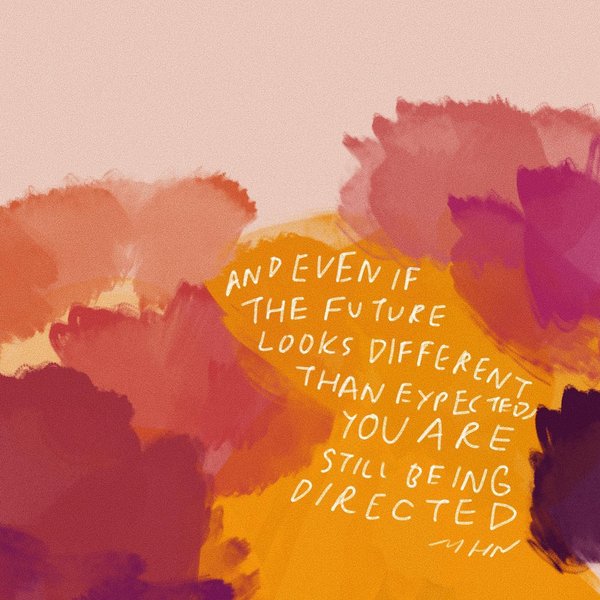 AND EVEN IF
THE FUTURE
LOOKS DIFFERENT
THAN EXPECTED,
YOU ARE
STILL BEING
DIRECTED
MHN